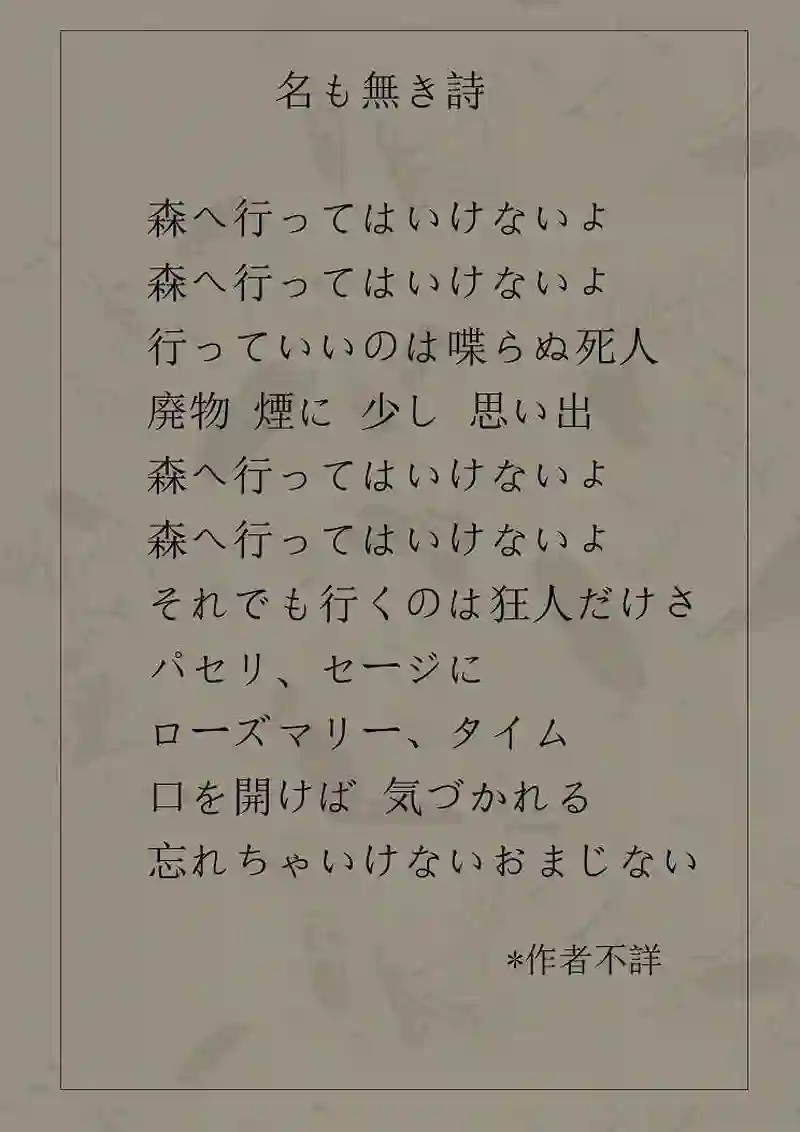 名も無き詩
森へ行ってはいけないよ
森へ行ってはいけないよ
行っていいのは喋らぬ死人
廃物 煙に 少し 思い出
森へ行ってはいけないよ
森へ行ってはいけないよ
それでも行くのは狂人だけさ
パセリ、セージに
ローズマリー、タイム
口を開けば 気づかれる
忘れちゃいけないおまじない
*作者不詳